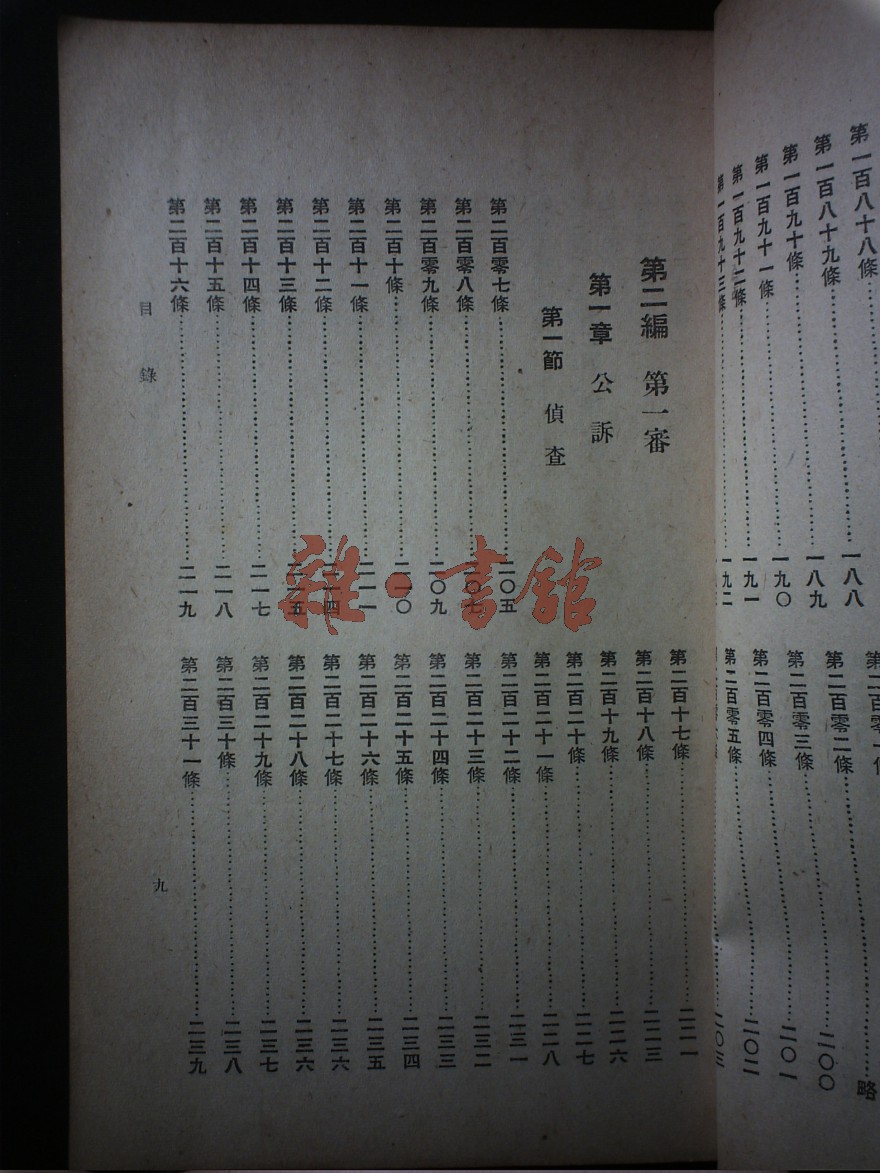 第一百八十八條……一八八
第一百八十九條……一八九
第一百九十條……一九〇
第一百九十一條……一九一
第一百九十二條……一九二
第一百九十三條……
第二百零一條……略
第二百零二條……二〇〇
第二百零三條……二〇一
第二百零四條……二〇二
第二百零五條……二〇三
第二編 第一審
第一章 公訴
第一節 偵查
第二百零七條……二〇五
第二百零八條……二〇七
第二百零九條……二〇九
第二百十條……二一〇
第二百十一條……二一一
第二百十二條……二一四
第二百十三條……二一五
第二百十四條……二一七
第二百十五條……二一八
第二百十六條……二一九
第二百十七條……二二一
第二百十八條……二二三
第二百十九條……二二六
第二百二十條……二二七
第二百二十一條……二二八
第二百二十二條……二三一
第二百二十三條……二三二
第二百二十四條……二三三
第二百二十五條……二三四
第二百二十六條……二三五
第二百二十七條……二三六
第二百二十八條……二三六
第二百二十九條……二三七
第二百三十條……二三八
第二百三十一條……二三九
目錄
九
雜·書館